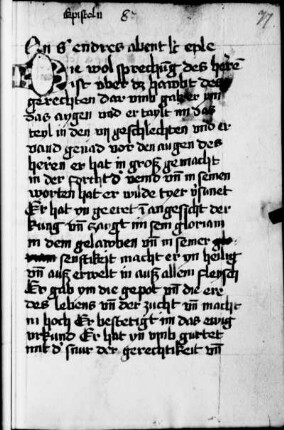 Epistoln 8 77
An S endres abent lc eple
Die wol sprechūg des herē
ist vber dz hawbt des
gerechten dar vmb gab er ym
das aygen vnd er taylt im das
teyl in den vij geschlechten vnd er
vand genad vor den augen des
heren er hat in groß gemacht
in der forcht d veind vn̄ in seinen
worten hat er wilde
Er hat yn geeret ī angesicht der
kung vn̄ zaygt im sein gloriam
in dem gelawben vn̄ in seiner
senftikeit macht er yn heilig
vn̄ auß erwelt in auß allem fleysch
Er gab ym die gepot vn̄ die ere
des lebens vn̄ der zucht vn̄ macht
in hoch Er bestetigt im das ewig
vrkund Er hat yn vmb gurtet
mit d snur der gerechtikeit vn̄